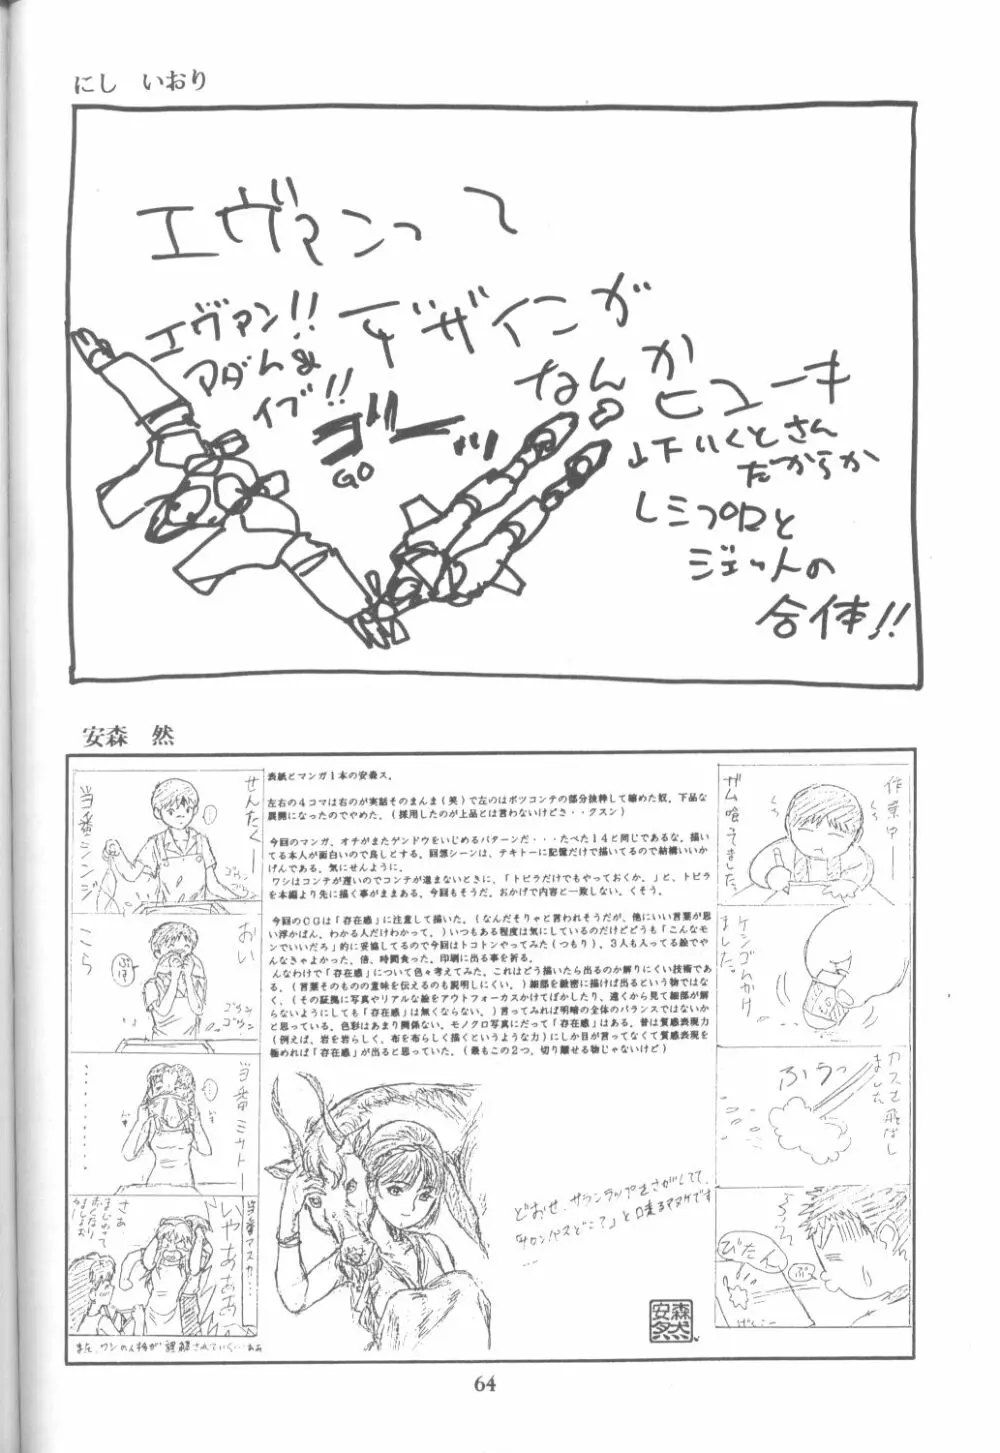 にし　いおり
エヴァンって
デザインが
なんか
ヒューキ
エヴァン!!
アダム&
イブ!!
ゴーッ
GO
山下いくとさん
だからか
レシプロと
ジェットの
合体!!
安森　然
表紙とマンガ１本の安森ス。
左右の４コマは右のが実話そのまんま（笑）で左のはボツコンテの部分抜粋して縮めた奴。下品な
展開になったのでやめた。（採用したのが上品とは言わないけどさ・・グスン）
今回のマンガ、オチがまたゲンドウをいじめるパターンだ・・・たべた１４と同じであるな。描い
てる本人が面白いので良しとする。回想シーンは、テキトーに記憶だけで描いてるので結構いいか
げんである。気にせんように。
ワシはコンテが遅いのでコンテが進まないときに、「トビラだけでもやっておくか。」と、トビラ
を本編より先に描く事がままある。今回もそうだ。おかげで内容と一致しない。くそう。
今回のＣＧは「存在感」に注意して描いた。（なんだそりゃと言われそうだが、他にいい言葉が思
い浮かばん、わかる人だけわかって。）いつもある程度は気にしているのだけどどうも「こんなモ
ンでいいだろ」的に妥協してるので今回はトコトンやってみた（つもり）。３人も入ってる絵でや
んなきゃよかった、倍、時間食った。印刷に出る事を祈る。
んなわけで「存在感」について色々考えてみた。これはどう描いたら出るのか解りにくい技術であ
る。（言葉そのものの意味を伝えるのも説明しにくい。）細部を緻密に描けば出るという物ではな
く、（その証拠に写真やリアルな絵をアウトフォーカスかけてぼかしたり、遠くから見て細部が解
らないようにしても「存在感」は無くならない。）言ってみれば明暗の全体のバランスではないか
と思っている。色彩はあまり関係ない。モノクロ写真にだって「存在感」はある。昔は質感表現力
（例えば、岩を岩らしく、布を布らしく描くというような力）にしか目が言ってなくて質感表現を
極めれば「存在感」が出ると思っていた。（最もこの２つ、切り離せる物じゃないけど）
作業中——
ガム喰ってました。
ケシゴムかけ
ました。
カスを飛ばし
ました
ふうっ
ぷっ
ぴたん
げんこー
せんたくー
当番シンジ
ゴウン
ゴウン
おい
こら
ゴウン
ゴウン
当番ミサトー
当番アスカ…
いやああぁ
さぁ、
また、ワシの人格が誤解されていく…ああ
どおせ、サランラップをさがしてて、
「サロンパスどこ？」と口走るアタマです
……
安森然
64